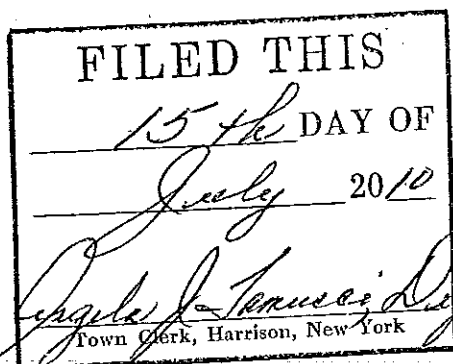 FILED THIS
15th DAY OF
July 2010
Angela J.
Town Clerk, Harrison, New York